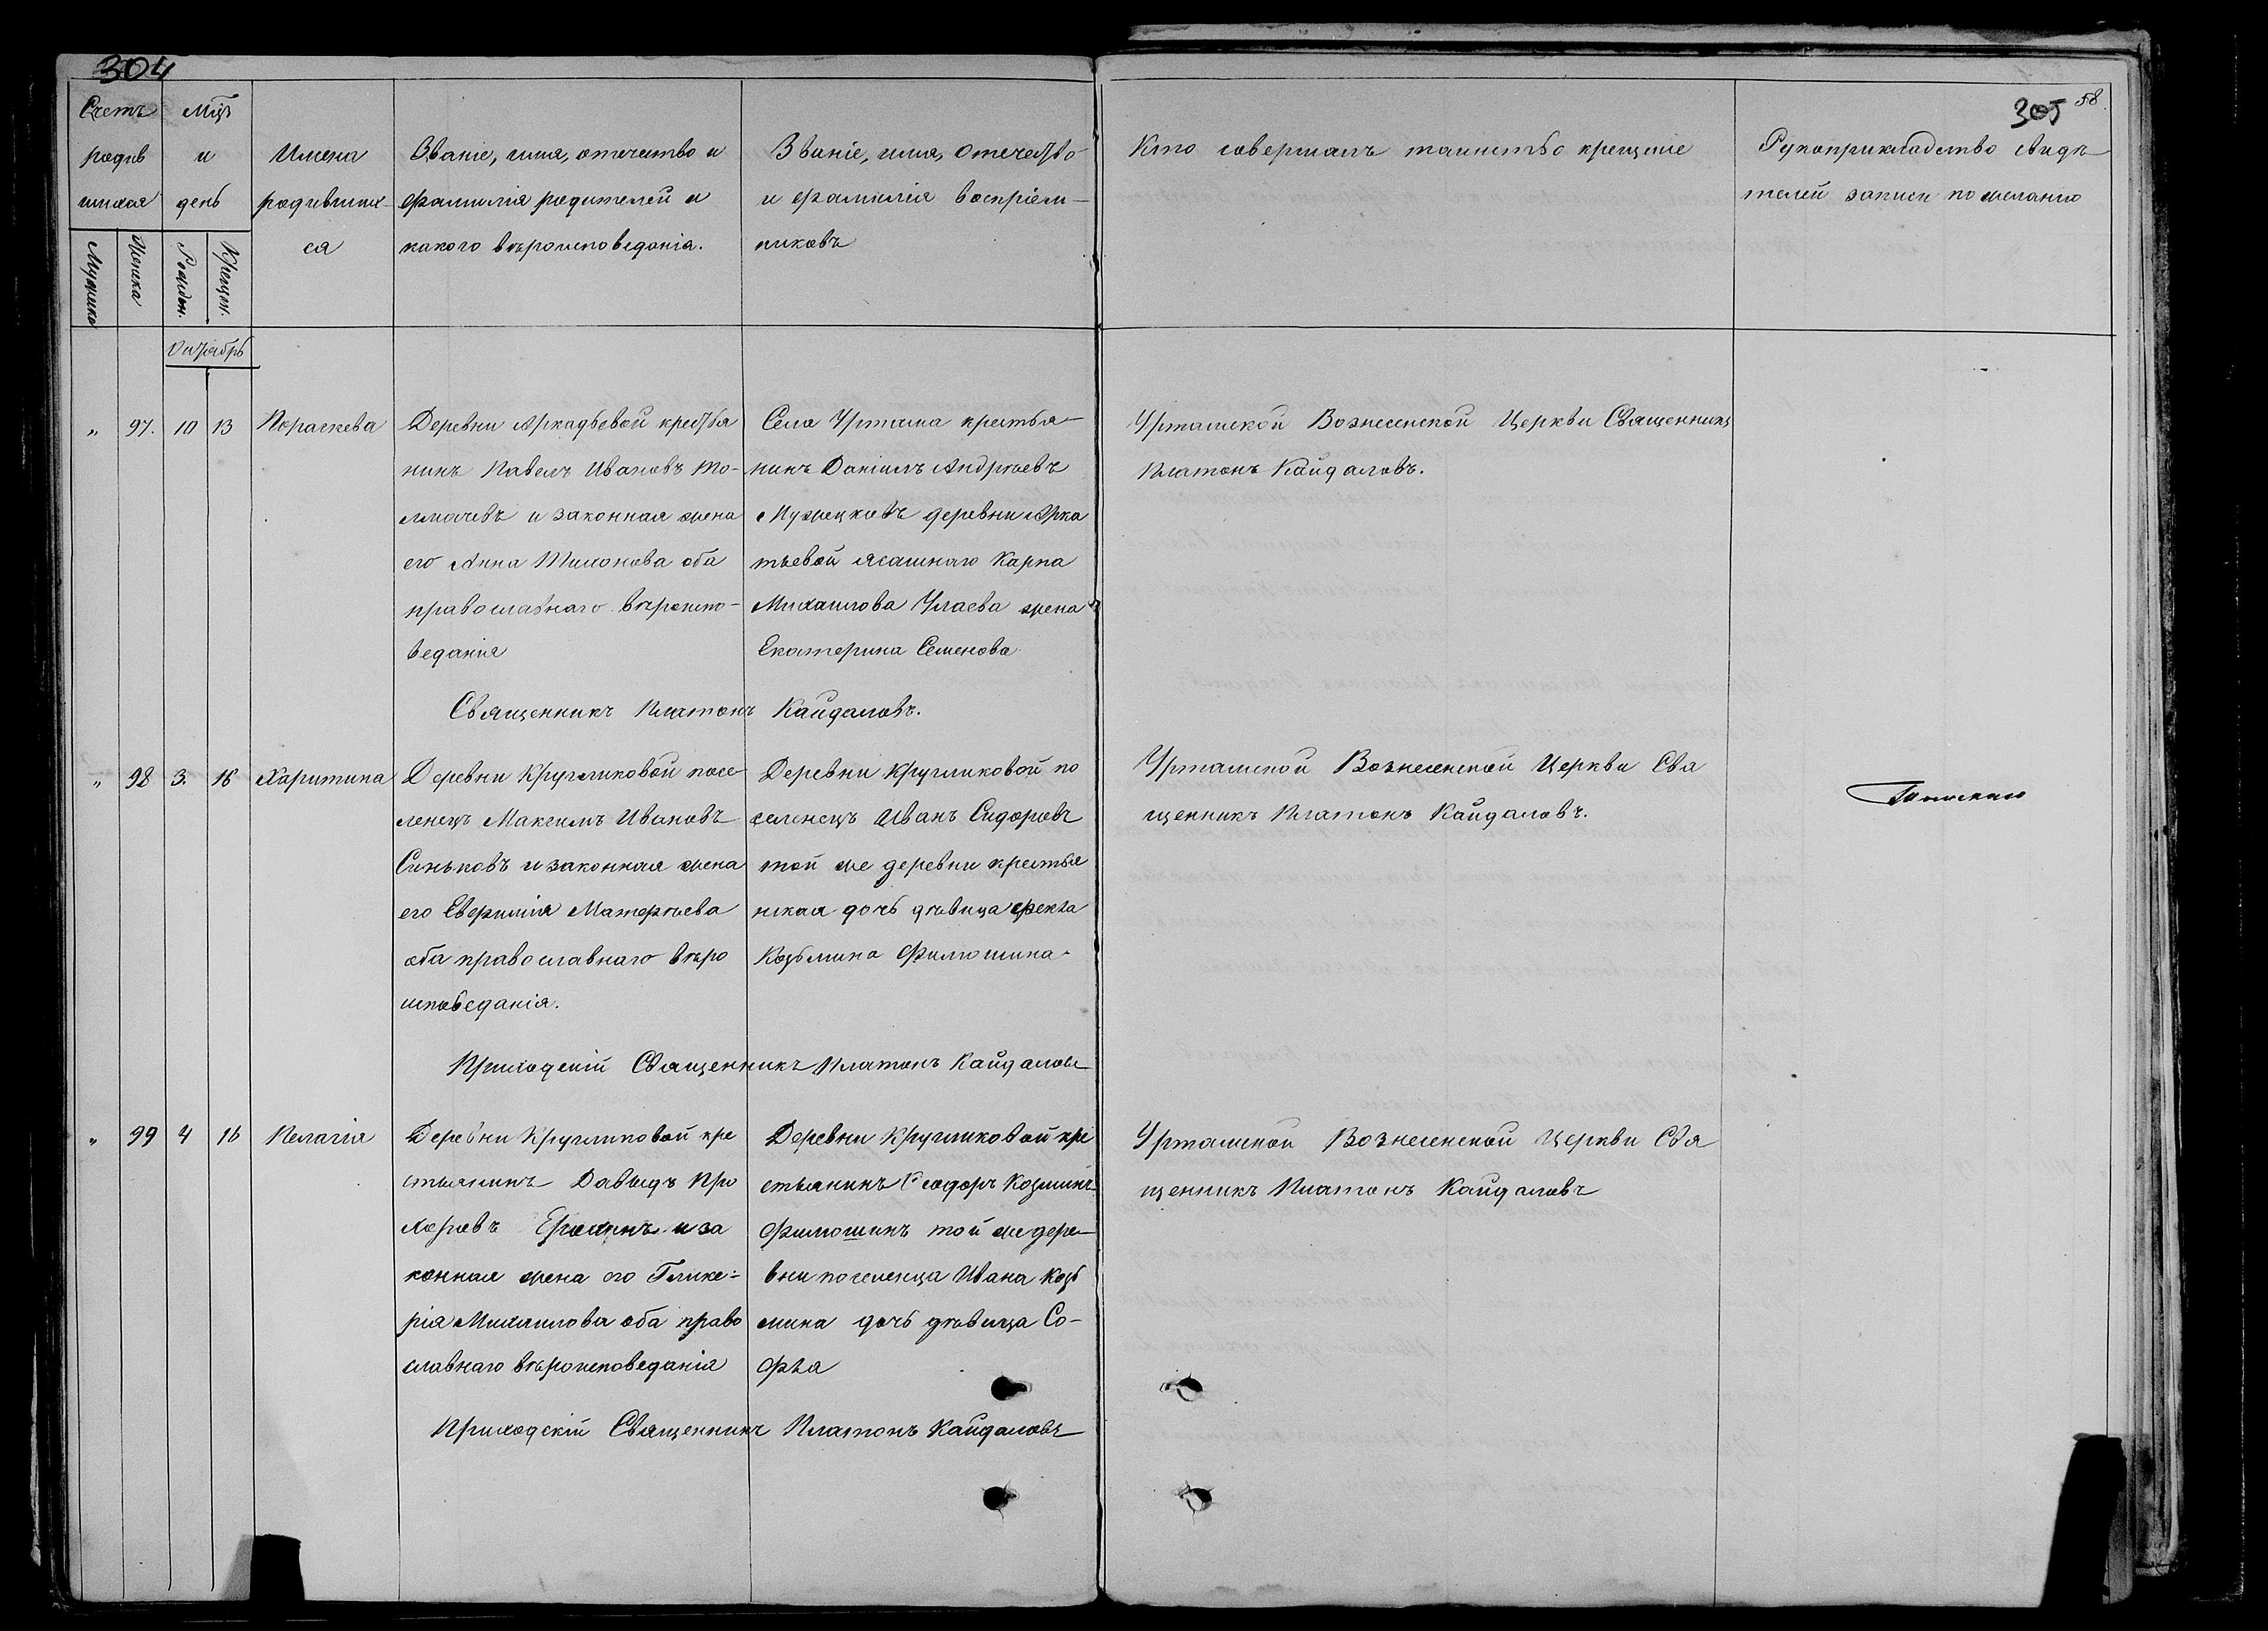 304
Счетъ родив шихся
Мужеска
Женска
Мцъ и день
Рожден.
Крещен.
Имена родивших-ся
Званіе, имя, отечество и
фамилія родителей и
какого вѣроисповеданія.
Званіе, имя, отечество
и фамилія воспріем-
никовъ
Кто совершалъ таинство крещеніе
305
58.
Рукоприкладство свидѣ
телей записи по желанію
Октябрь
„ 97. 10 13 Параскева
Деревни Аркадьевой крестья
нинъ Павелъ Ивановъ То-
лмачевъ и законная жена
его Анна Тихонова оба
православнаго вѣроиспо-
веданія
Села Уртама крестья-
нинъ Даніилъ Андреевъ
деревни Арка
тьевой ясашнаго Карпа
Михаилова Улаева жена
Екатерина Семенова
Уртамской Вознесенской Церкви Священникъ
Платонъ Кайдаловъ.
Священникъ Платонъ Кайдаловъ.
„ 98 3. 16 Харитина
Деревни Кругликовой посе
ленецъ Максимъ Ивановъ
Синьковъ и законная жена
его Евфимія Матфеева
оба православнаго вѣро
исповеданія.
Деревни Кругликовой по
селенецъ Иванъ Сидоровъ
той же деревни крестья
нская дочь дѣвица Фекла
Козьмина Филюшина
Уртамской Вознесенской Церкви Свя
щенникъ Платонъ Кайдаловъ.
Приходскій Священникъ Платонъ Кайдаловъ
„ 99 4 16 Пелагія
Деревни Кругликовой кре
стьянинъ Давыдъ Про
хоровъ Ерохинъ и за
конная жена его Глике-
рія Михаилова оба право
славнаго вѣроисповеданія
Деревни Кругликовой кре
стьянинъ Ѳеодоръ Козминъ
Филюшинъ той же дере-
вни поселенца Ивана Козь
мина дочь дѣвица Со-
фья
Уртамской Вознесенской Церкви Свя
щенникъ Платонъ Кайдаловъ
Приходскій Священникъ Платонъ Кайдаловъ